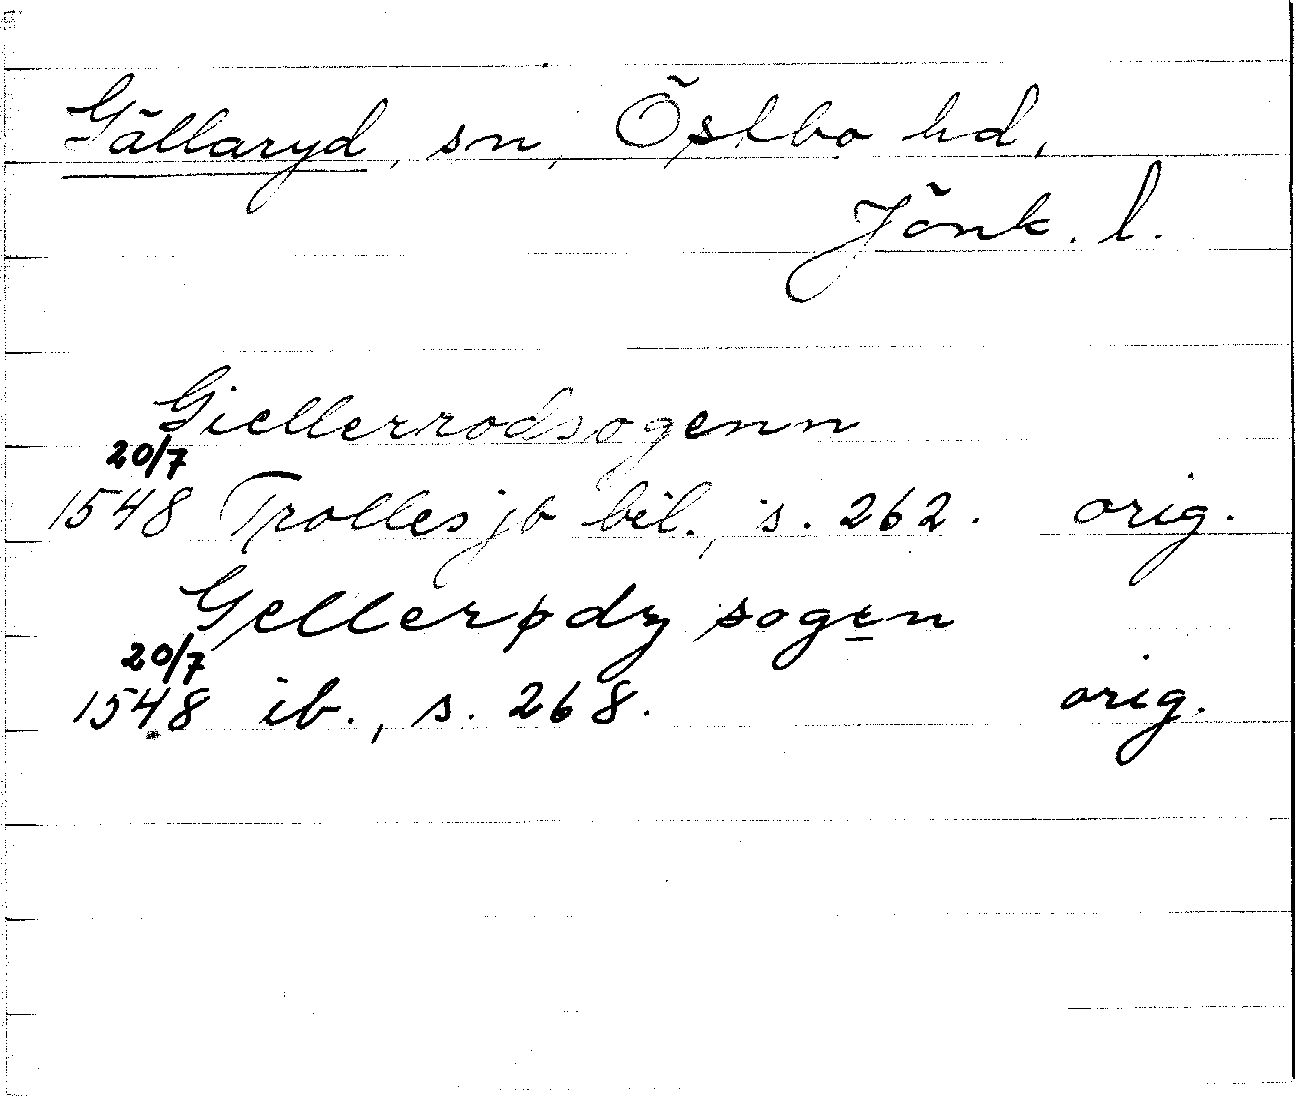 Gällaryd, sn, Östbo hd,
Jönk. l.
Giellerrodsogenn
20/7
1548 Trolles jb bil., s. 262. orig.
Gellerødz sogen
20/7
1548 ib., s. 268. orig.